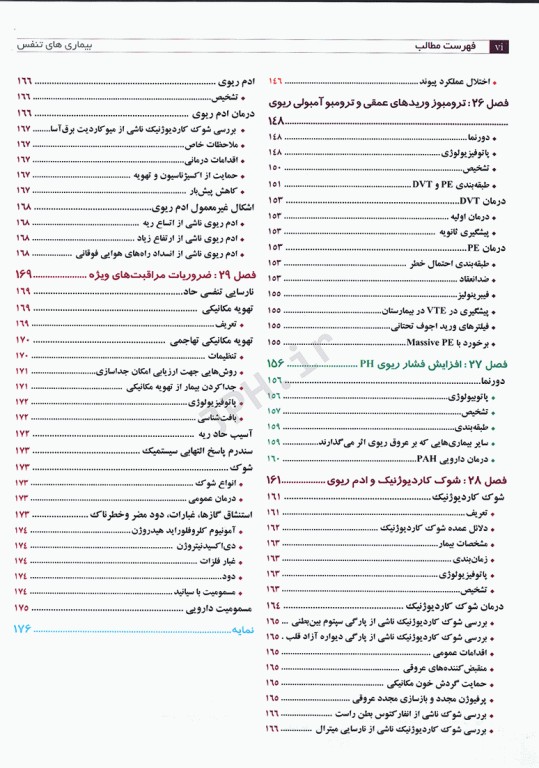 vi فهرست مطالب
بیماری های تنفس
اختلال عملکرد پیوند ۱۴۶
فصل ۲۶ : ترومبوز وریدهای عمقی و ترومبو آمبولی ریوی
۱۴۸
دورنما ۱۴۸
پاتوفیزیولوژی ۱۴۸
تشخیص ۱۵۰
طبقه‌بندی PE و DVT ۱۵۱
درمان DVT ۱۵۳
درمان اولیه ۱۵۳
پیشگیری ثانویه ۱۵۳
درمان PE ۱۵۳
طبقه‌بندی احتمال خطر ۱۵۳
ضدانعقاد ۱۵۳
فیبرینولیز ۱۵۵
پیشگیری در VTE در بیمارستان ۱۵۵
فیلترهای ورید اجوف تحتانی ۱۵۵
برخورد با Massive PE ۱۵۵
فصل ۲۷ : افزایش فشار ریوی PH ۱۵۶
دورنما ۱۵۶
پاتوبیولوژی ۱۵۶
تشخیص ۱۵۷
طبقه‌بندی ۱۵۹
سایر بیماری‌هایی که بر عروق ریوی اثر می‌گذارند ۱۵۹
درمان دارویی PAH ۱۶۰
فصل ۲۸ : شوک کاردیوژنیک و ادم ریوی ۱۶۱
شوک کاردیوژنیک ۱۶۱
تعریف ۱۶۱
دلائل عمده شوک کاردیوژنیک ۱۶۲
مشخصات بیمار ۱۶۳
زمان‌بندی ۱۶۳
پاتوفیزیولوژی ۱۶۳
تشخیص ۱۶۳
درمان شوک کاردیوژنیک ۱۶۴
بررسی شوک کاردیوژنیک ناشی از پارگی سپتوم بین‌بطنی ... ۱۶۵
بررسی شوک کاردیوژنیک ناشی از پارگی دیواره آزاد قلب . ۱۶۵
اقدامات عمومی ۱۶۵
منقبض‌کننده‌های عروقی ۱۶۵
حمایت گردش خون مکانیکی ۱۶۵
پرفیوژن مجدد و بازسازی مجدد عروقی ۱۶۵
بررسی شوک ناشی از انفارکتوس بطن راست ۱۶۶
بررسی شوک کاردیوژنیک ناشی از نارسایی میترال ۱۶۶
ادم ریوی ۱۶۶
تشخیص ۱۶۶
درمان ادم ریوی ۱۶۶
بررسی شوک کاردیوژنیک ناشی از میوکاردیت برق‌آسا ۱۶۷
ملاحظات خاص ۱۶۷
اقدامات درمانی ۱۶۷
حمایت از اکسیژناسیون و تهویه ۱۶۷
کاهش پیش‌بار ۱۶۷
اشکال غیرمعمول ادم ریوی ۱۶۸
ادم ریوی ناشی از اتساع ریه ۱۶۸
ادم ریوی ناشی از ارتفاع زیاد ۱۶۸
ادم ریوی ناشی از انسداد راه‌های هوایی فوقانی ۱۶۸
فصل ۲۹ : ضروریات مراقبت‌های ویژه ۱۶۹
نارسایی تنفسی حاد ۱۶۹
تهویه مکانیکی ۱۶۹
تعریف ۱۶۹
تهویه مکانیکی تهاجمی ۱۷۰
تنظیمات ۱۷۰
روش‌هایی جهت ارزیابی امکان جداسازی ۱۷۱
جداکردن بیمار از تهویه مکانیکی ۱۷۱
پاتوفیزیولوژی ۱۷۲
بافت‌شناسی ۱۷۲
آسیب حاد ریه ۱۷۲
سندرم پاسخ التهابی سیستمیک ۱۷۳
شوک ۱۷۳
انواع شوک ۱۷۳
درمان عمومی ۱۷۳
استنشاق گازها، غبارات، دود مضر وخطرناک ۱۷۳
آمونیوم کلروفلوراید هیدروژن ۱۷۴
دی‌اکسیدنیتروژن ۱۷۴
غبار فلزات ۱۷۴
دود ۱۷۴
مسمومیت با سیانید ۱۷۴
مسمومیت دارویی ۱۷۵
نمایه ۱۷۶
JPH.ir